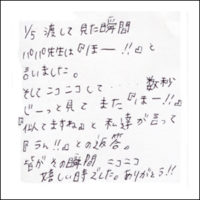 1/5 渡して見た瞬間
パパ先生は『ほー!!』と
言いました。
そしてニコニコして‥‥‥数秒
じーっと見てまた『ほー!!』
『似てますね』と私達が言って
『うん!!』との返答。
皆がその瞬間ニコニコ
嬉しい時でした。ありがとう!!